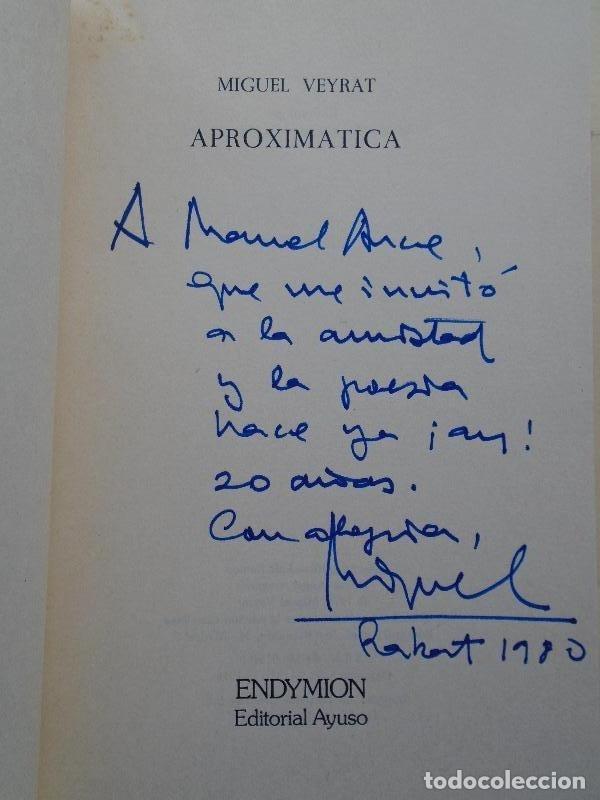 MIGUEL VEYRAT
APROXIMATICA
A Manuel Arce,
que me invitó
a la amistad
y la poesia
hace ya ¡ay!
20 años.
Con alegria,
Miguel
Rabat 1980
ENDYMION
Editorial Ayuso
todocoleccion
todocoleccion.net